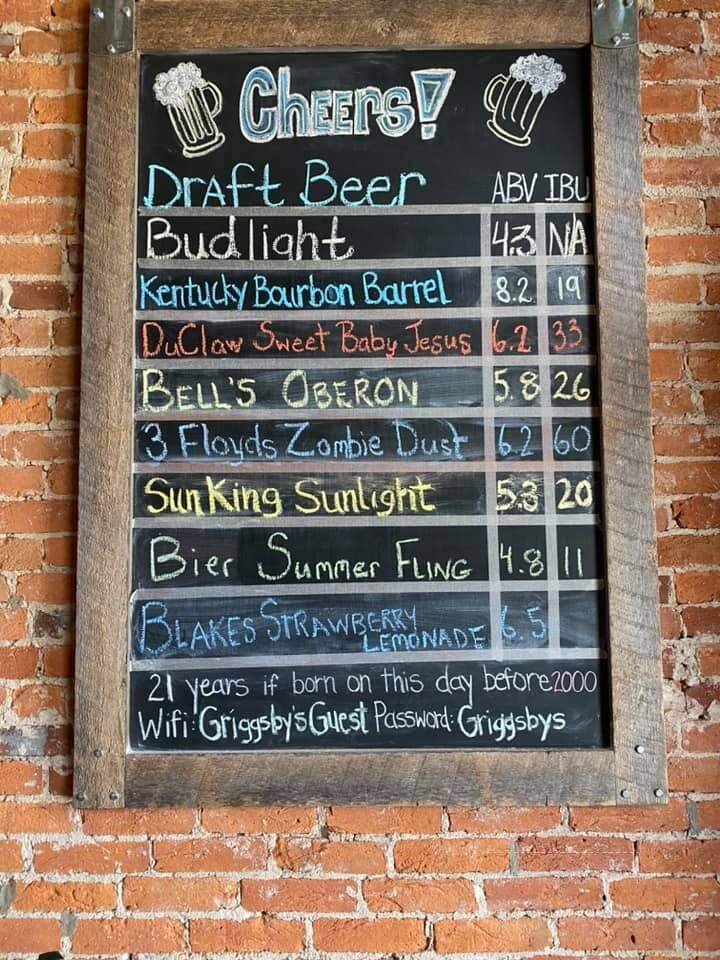 Cheers!
Draft Beer ABV IBU
Budlight 4.3 NA
Kentucky Bourbon Barrel 8.2 19
DuClaw Sweet Baby Jesus 6.2 33
BELL'S OBERON 5.8 26
3 Floyds Zombie Dust 6.2 60
Sun King Sunlight 5.3 20
Bier Summer FLING 4.8 11
BLAKES STRAWBERRY LEMONADE 6.5
21 years if born on this day before 2000
Wifi: Griggsby's Guest Password: Griggsbys